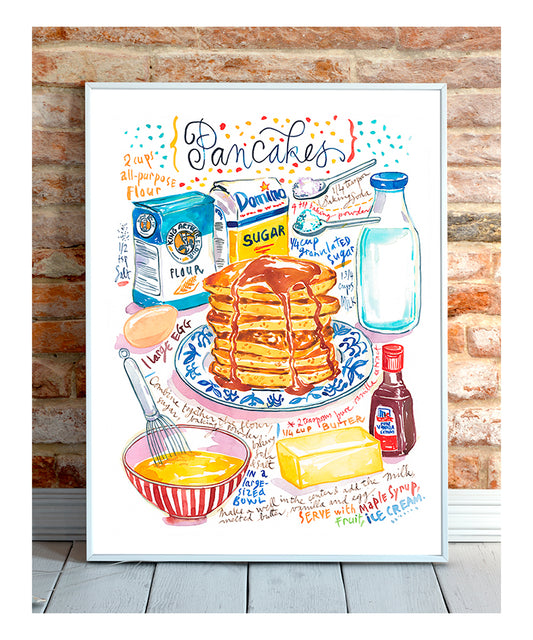 Pancakes
2 cups
all-purpose
Flour
1/2
tsp
Salt
KING ARTHUR FLOUR
FLOUR
Domino
SUGAR
1/4 teaspoon
Baking Soda
4 tsp baking powder
1/4 cup
granulated
Sugar
1 3/4
cups
MILK
1 large EGG
* 2 teaspoons pure vanilla extract
PURE
VANILLA
EXTRACT
1/4 cup BUTTER
Combine together the flour,
sugar, baking powder,
baking
soda
& salt
IN a
large-
SIZED
BOWL
Make a well in the center & add the milk,
melted butter, vanilla and egg.
SERVE with Maple Syrup,
Fruit, ICE CREAM.